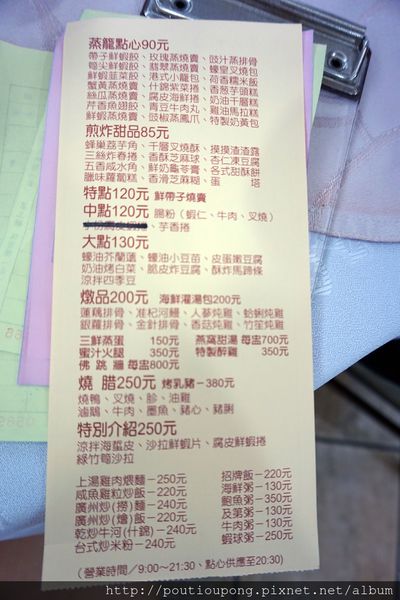 蒸籠點心90元
帶子鮮蝦餃、玫瑰蒸燒賣、豉汁蒸排骨
筍尖鮮蝦餃、翡翠蒸燒賣、蠔皇叉燒包
鮮蝦韮菜餃、港式小籠包、荷香糯米飯
蟹黃蒸燒賣、什錦紫菜捲、香蔥芋頭糕
絲瓜蒸燒賣、腐皮海鮮捲、奶油千層糕
芹香魚翅餃、青豆牛肉丸、雞油馬拉糕
鮮蝦蒸燒賣、豉椒蒸鳳爪、特製奶黃包
煎炸甜品85元
蜂巢荔芋角、千層叉燒酥、摸摸渣渣露
三絲炸春捲、香酥芝麻球、杏仁凍豆腐
五香咸水角、鮮奶龜苓膏、各式甜酥餅
臘味蘿蔔糕、香滑芝麻糊、蛋　　塔
特點120元 鮮帶子燒賣
中點120元 腸粉（蝦仁、牛肉、叉燒）
、芋香捲
大點130元
蠔油芥蘭薳、蠔油小豆苗、皮蛋嫩豆腐
奶油烤白菜、脆皮炸豆腐、酥炸馬蹄條
涼拌四季豆
燉品200元 海鮮灌湯包200元
蓮藕排骨、准杞河鰻、人蔘炖雞、蛤蜊炖雞
銀蘿排骨、金針排骨、香菇炖雞、竹笙炖雞
三鮮蒸蛋 150元 燕窩甜湯 每盅700元
蜜汁火腿 350元 特製醉雞 350元
佛 跳 牆 每盅800元
燒 腊250元 烤乳豬－380元
燒鴨、叉燒、胗、油雞
滷鵝、牛肉、墨魚、豬心、豬腳
特別介紹250元
涼拌海蜇皮、沙拉鮮蝦片、腐皮鮮蝦捲
綠竹筍沙拉
上湯雞肉煨麵－250元 招牌飯－220元
咸魚雞粒炒飯－220元 海鮮粥－130元
廣州炒(撈)麵－240元 鮑魚粥－350元
廣州炒(燴)飯－220元 及第粥－130元
乾炒牛河(什錦)－240元 牛肉粥－130元
台式炒米粉－240元 蝦球粥－250元
（營業時間／9:00～21:30、點心供應至20:30)
http://poutioupong.pixnet.net/album